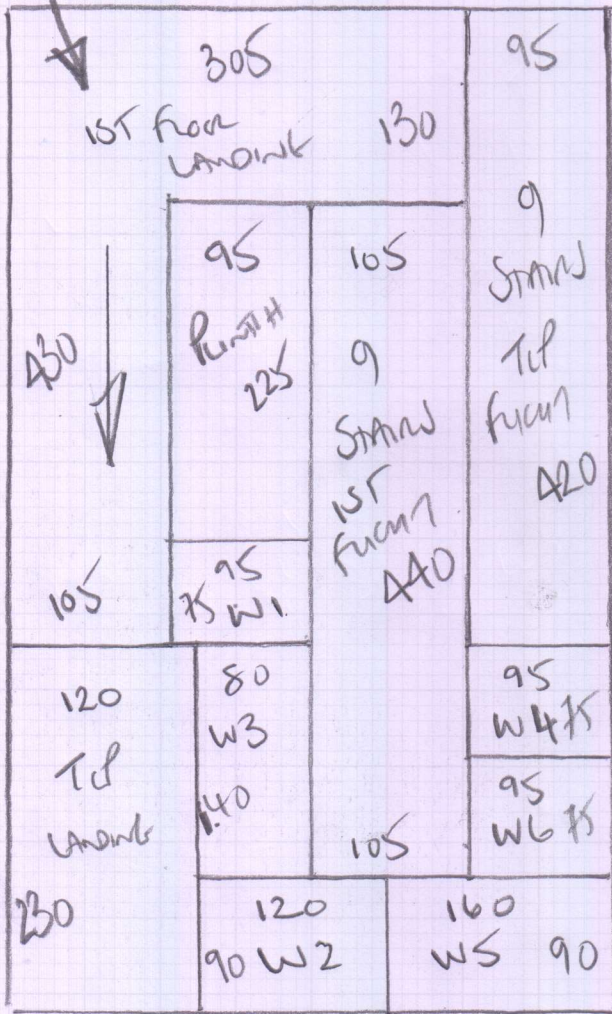 305
1ST FLOOR
LANDING
130
95
9
STAIRS
TOP
FLIGHT
420
430
105
95
PLINTH
225
105
9
STAIRS
1ST
FLIGHT
440
105
95
75 W1
120
TOP
LANDING
230
80
W3
140
95
W4 75
95
W6 75
120
90 W2
160
W5 90